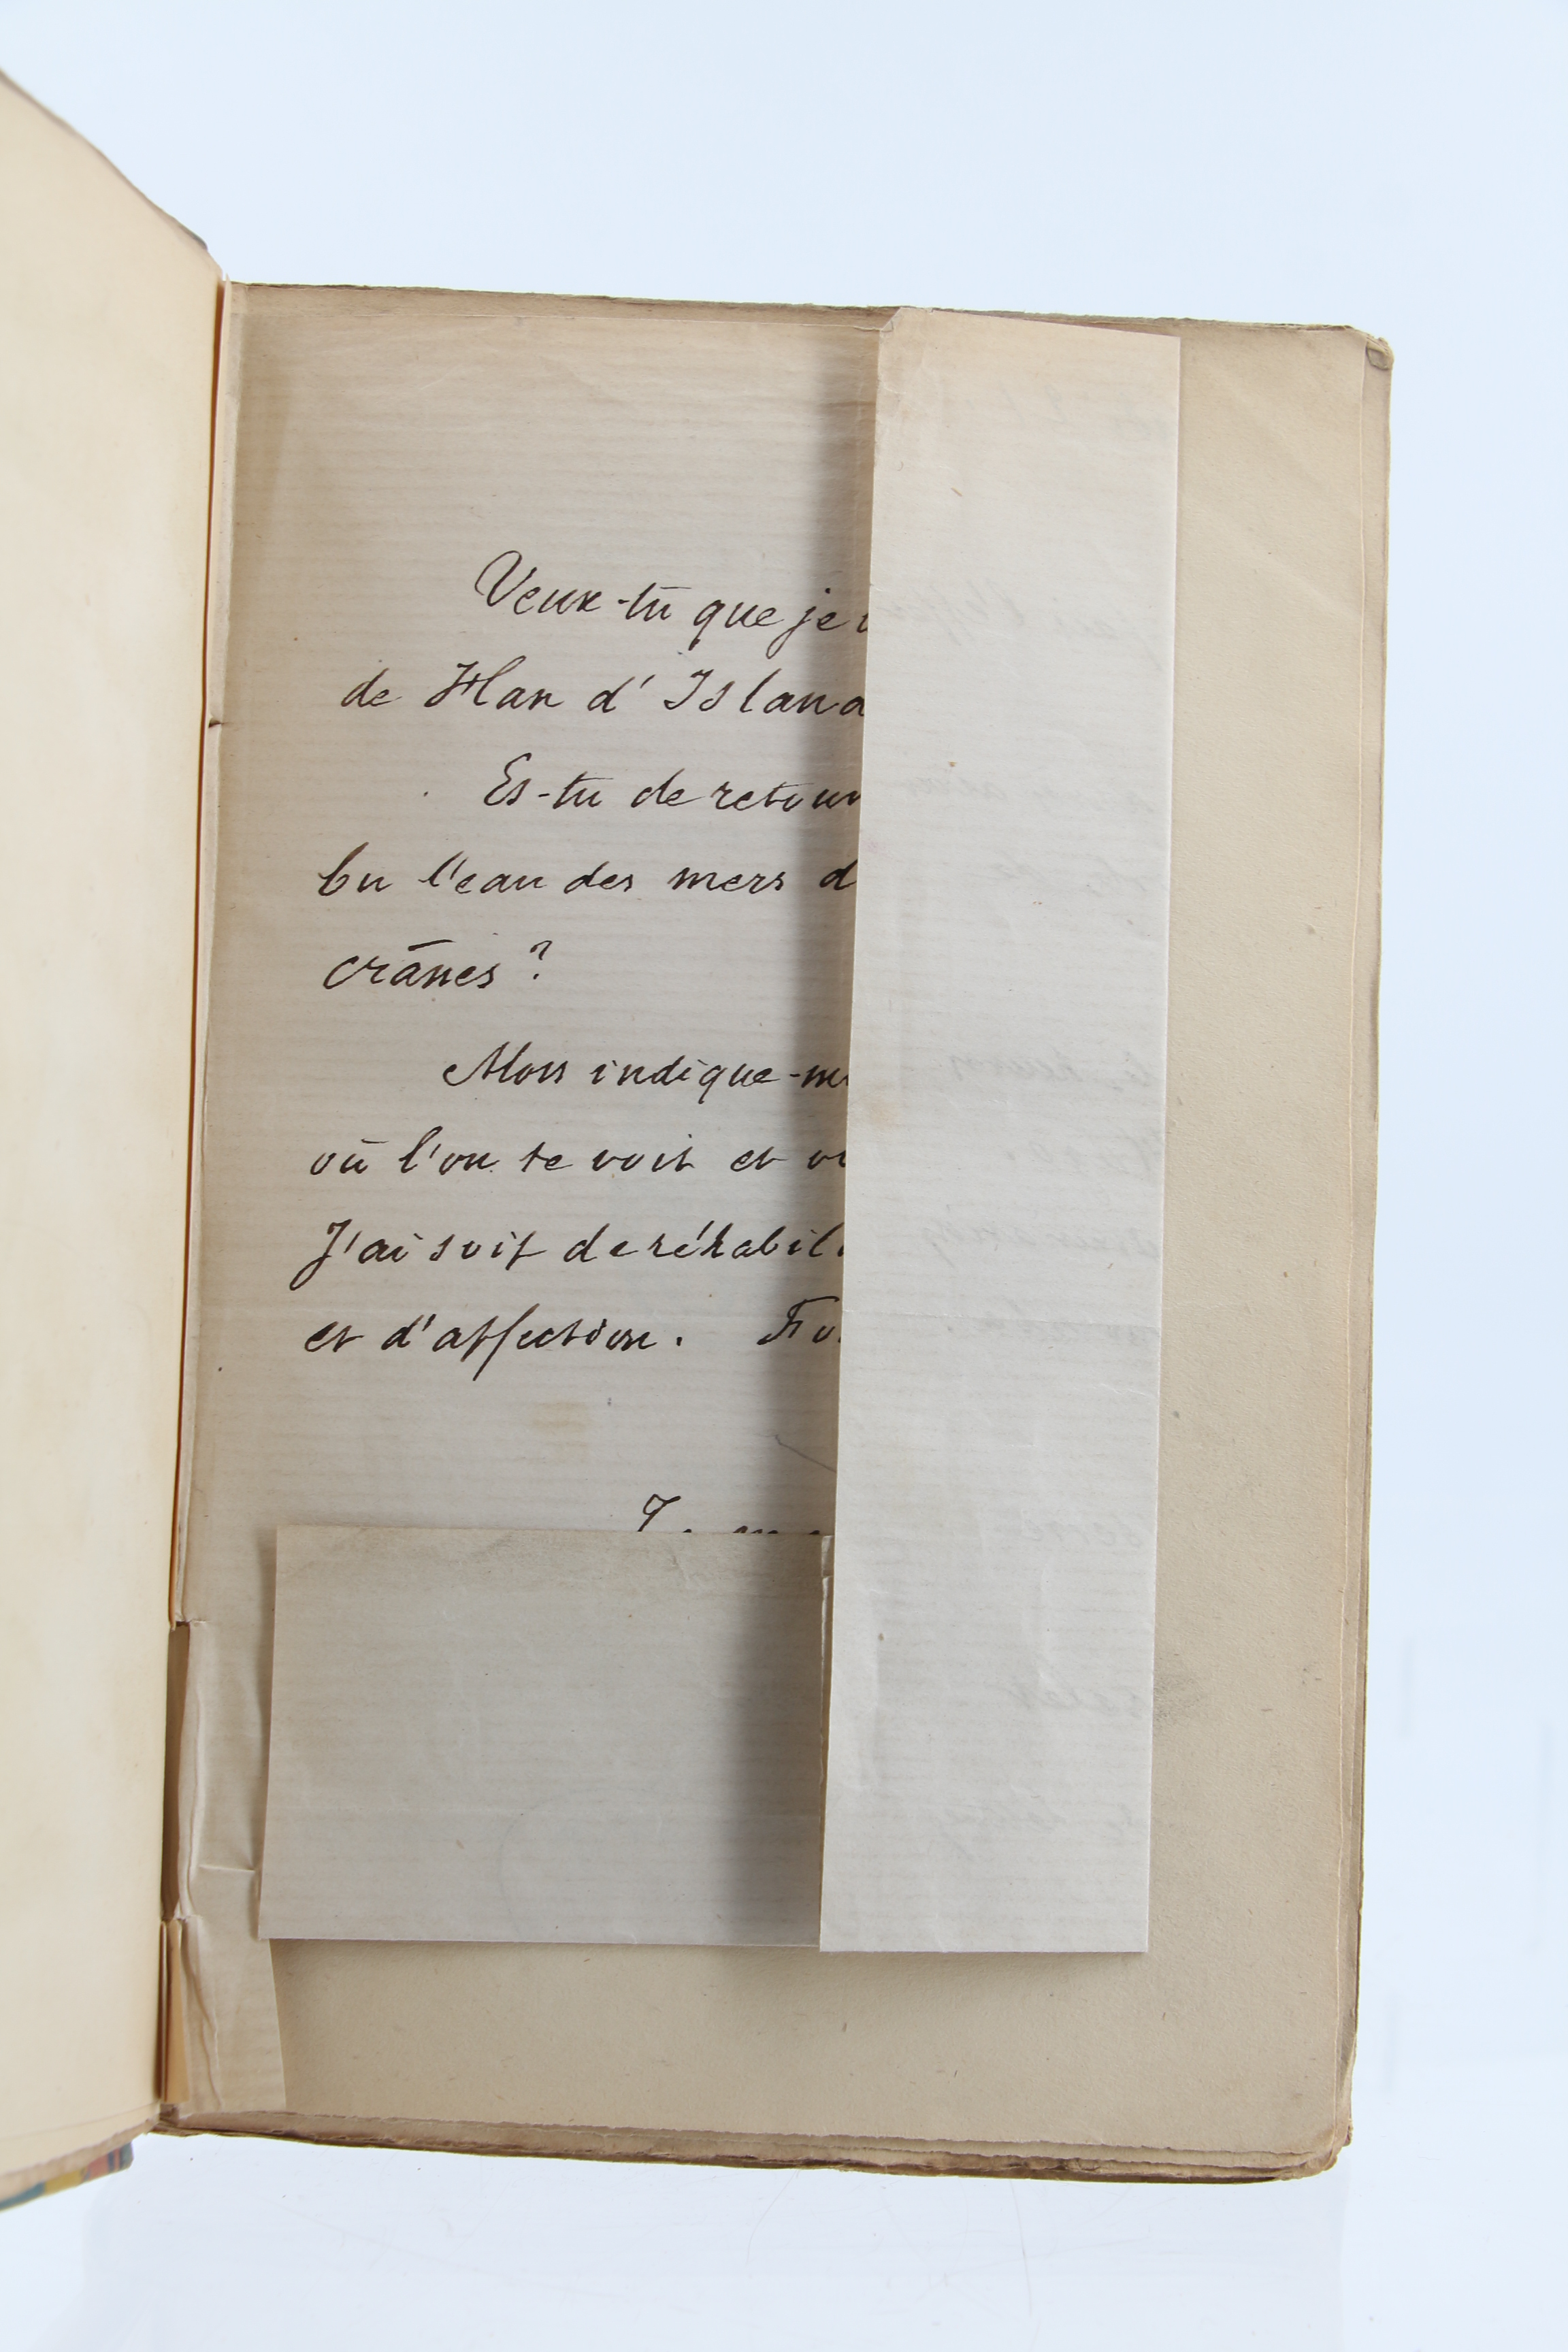 Veux-tu que je
de Han d'Island
Es-tu de retour
bu l'eau des mers d
crânes ?
Alors indique-m
où l'on te voit et
J'ai soif de réhabili
et d'affection. Fo